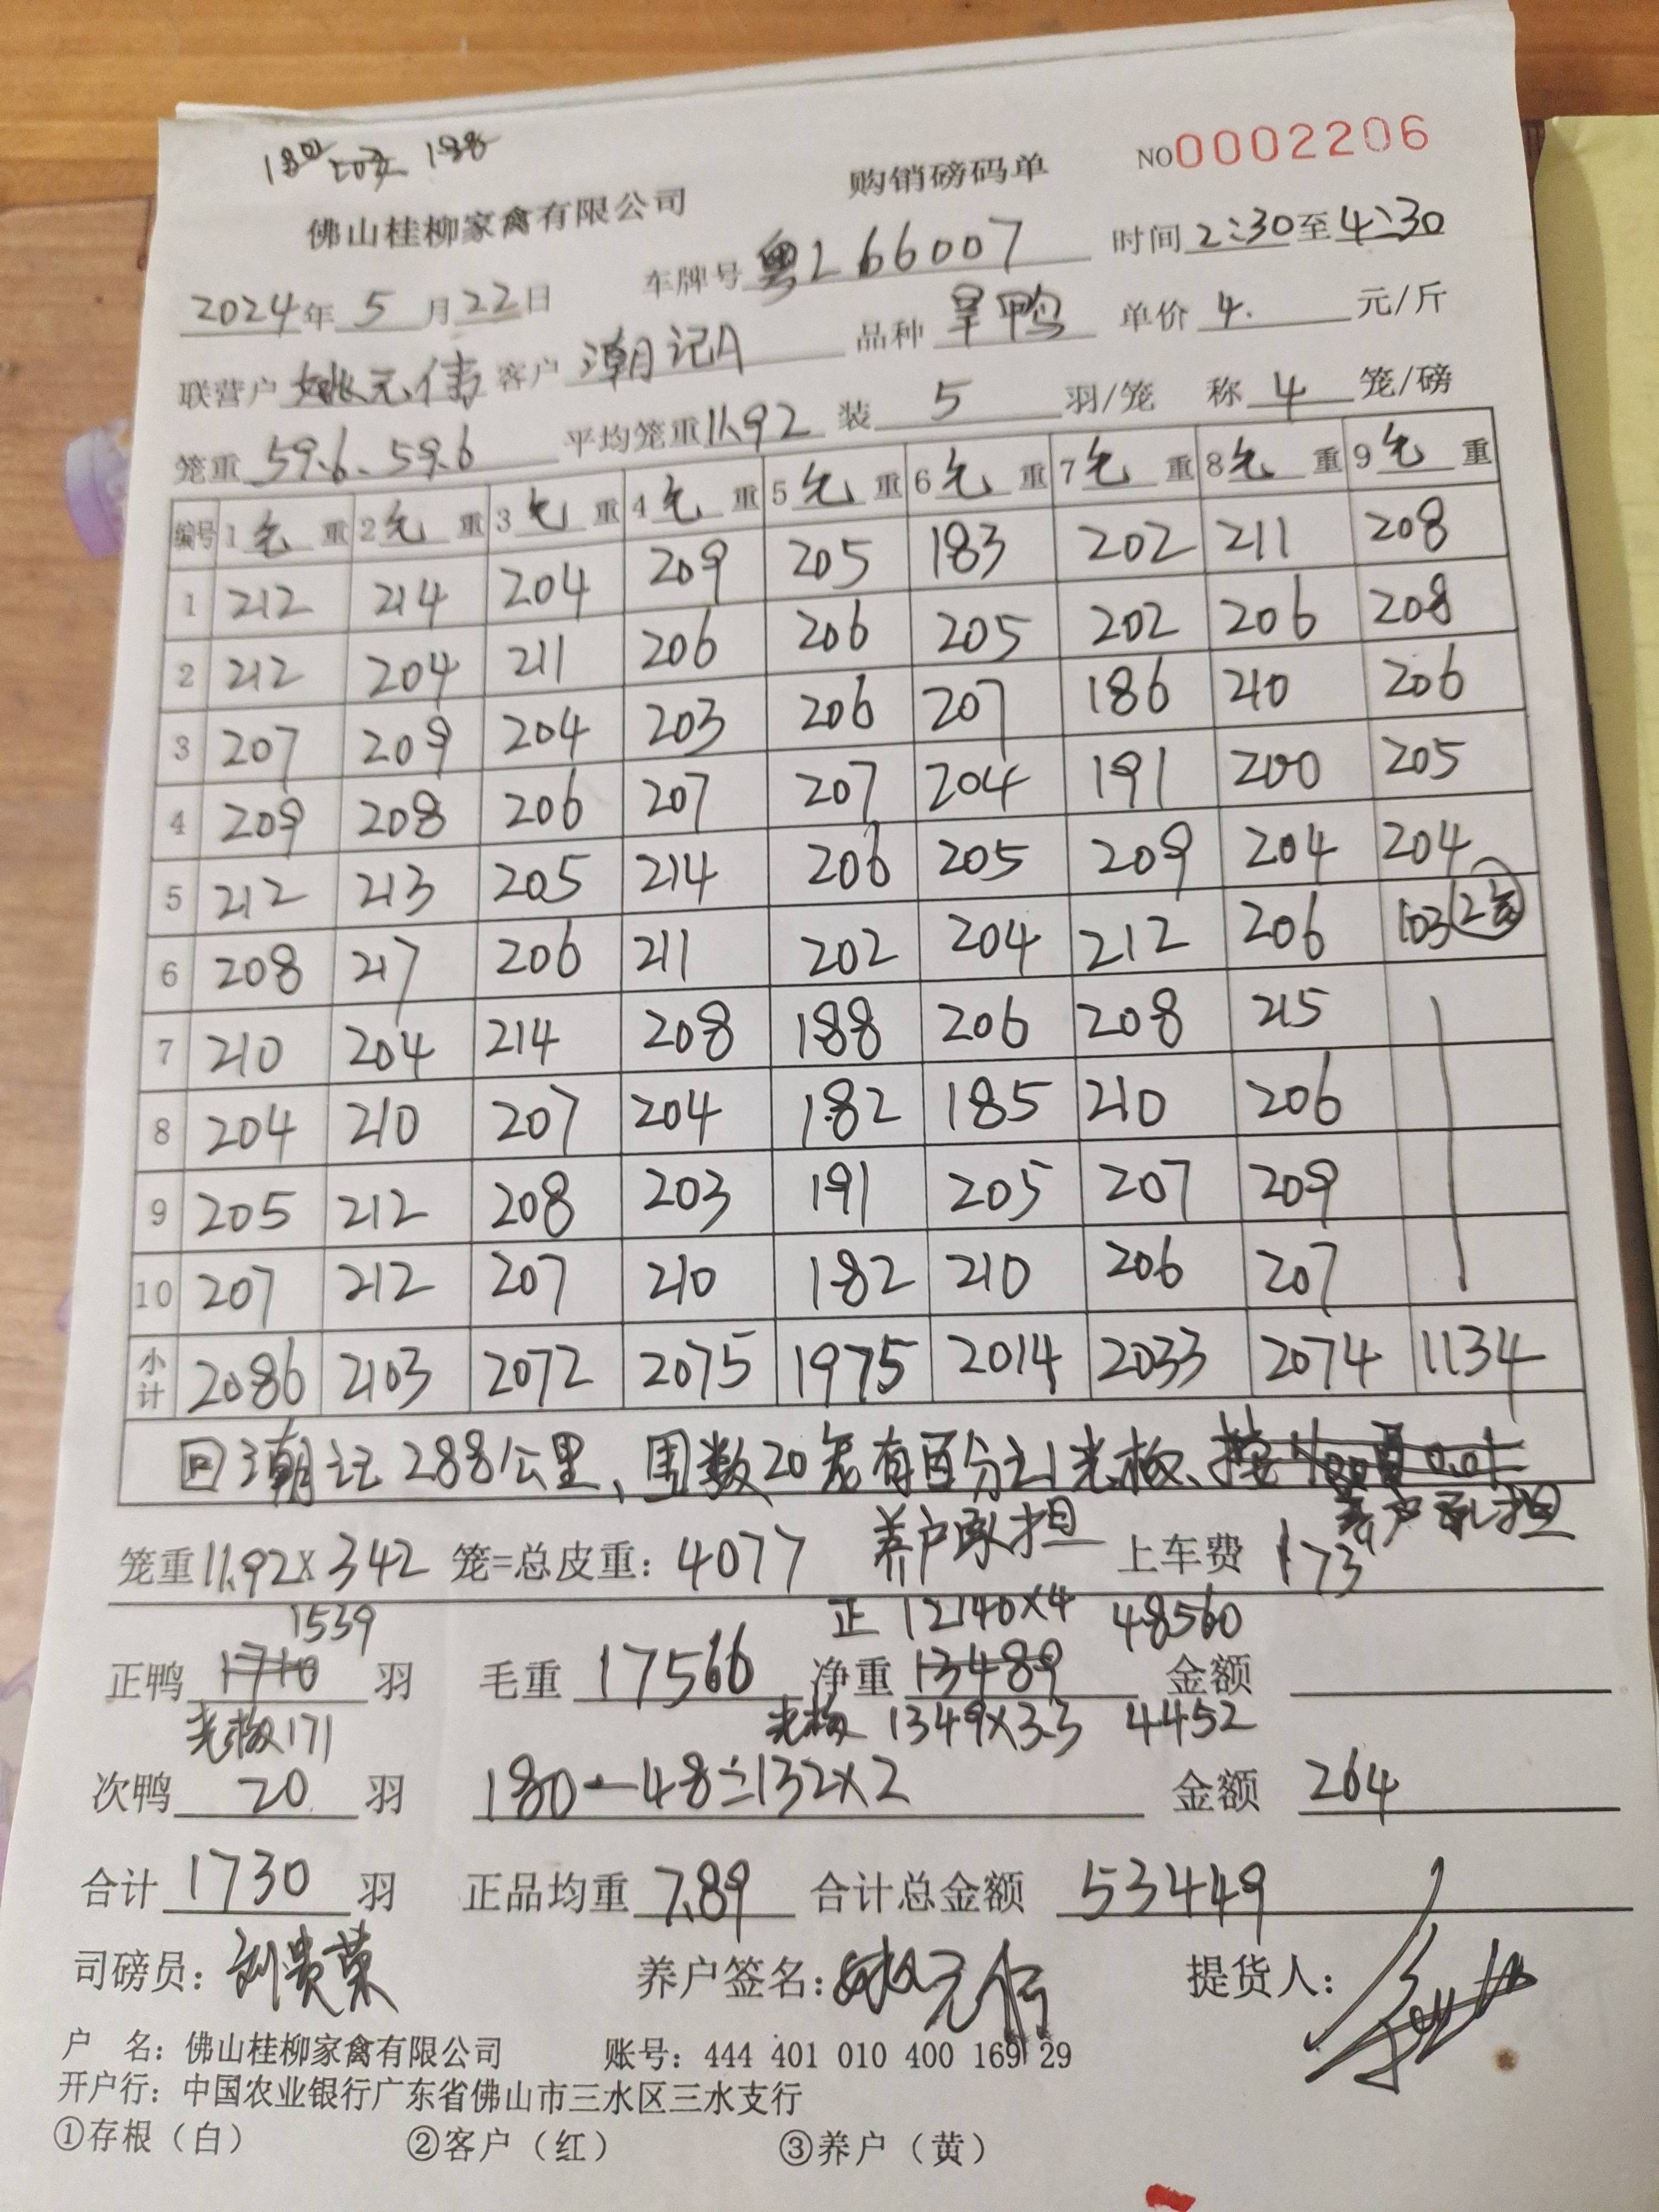 180 203 188
佛山桂柳家禽有限公司 购销磅码单 NO0002206
2024年5月22日 车牌号 粤L66007 时间2:30至4:30
联营户 姚元伟 客户 潮记A 品种 旱鸭 单价 4. 元/斤
笼重 59.6、59.6 平均笼重11.92 装 5 羽/笼 称 4 笼/磅
编号 1毛重 2毛重 3毛重 4毛重 5毛重 6毛重 7毛重 8毛重 9毛重
1 212 214 204 209 205 183 202 211 208
2 212 204 211 206 206 205 202 206 208
3 207 209 204 203 206 207 186 210 206
4 209 208 206 207 207 204 191 200 205
5 212 213 205 214 206 205 209 204 204
6 208 217 206 211 202 204 212 206 103(2笼)
7 210 204 214 208 188 206 208 215
8 204 210 207 204 182 185 210 206
9 205 212 208 203 191 205 207 209
10 207 212 207 210 182 210 206 207
小计 2086 2103 2072 2075 1975 2014 2033 2074 1134
回潮记288公里、周数20笼有百分之1光板、
养户承担 养户承担
笼重11.92×342 笼=总皮重: 4077 上车费 173
1539 正 12140×4 48560
正鸭 1710 羽 毛重 17566 净重 13489 金额
光板171 光板 1349×3.3 4452
次鸭 20 羽 180-48=132×2 金额 264
合计 1730 羽 正品均重 7.89 合计总金额 53449
司磅员: 刘贵荣 养户签名: 姚元伟 提货人:
户 名: 佛山桂柳家禽有限公司 账号: 444 401 010 400 169 29
开户行: 中国农业银行广东省佛山市三水区三水支行
①存根(白) ②客户(红) ③养户(黄)